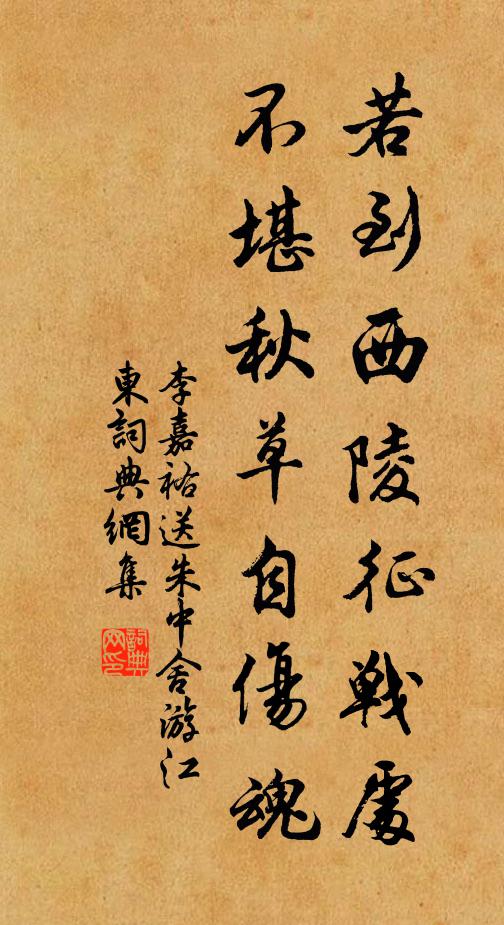 若到西陵征戰處
不堪秋草自傷魂
李嘉祐送朱中舍游江
東詞典網集
詞典
网印